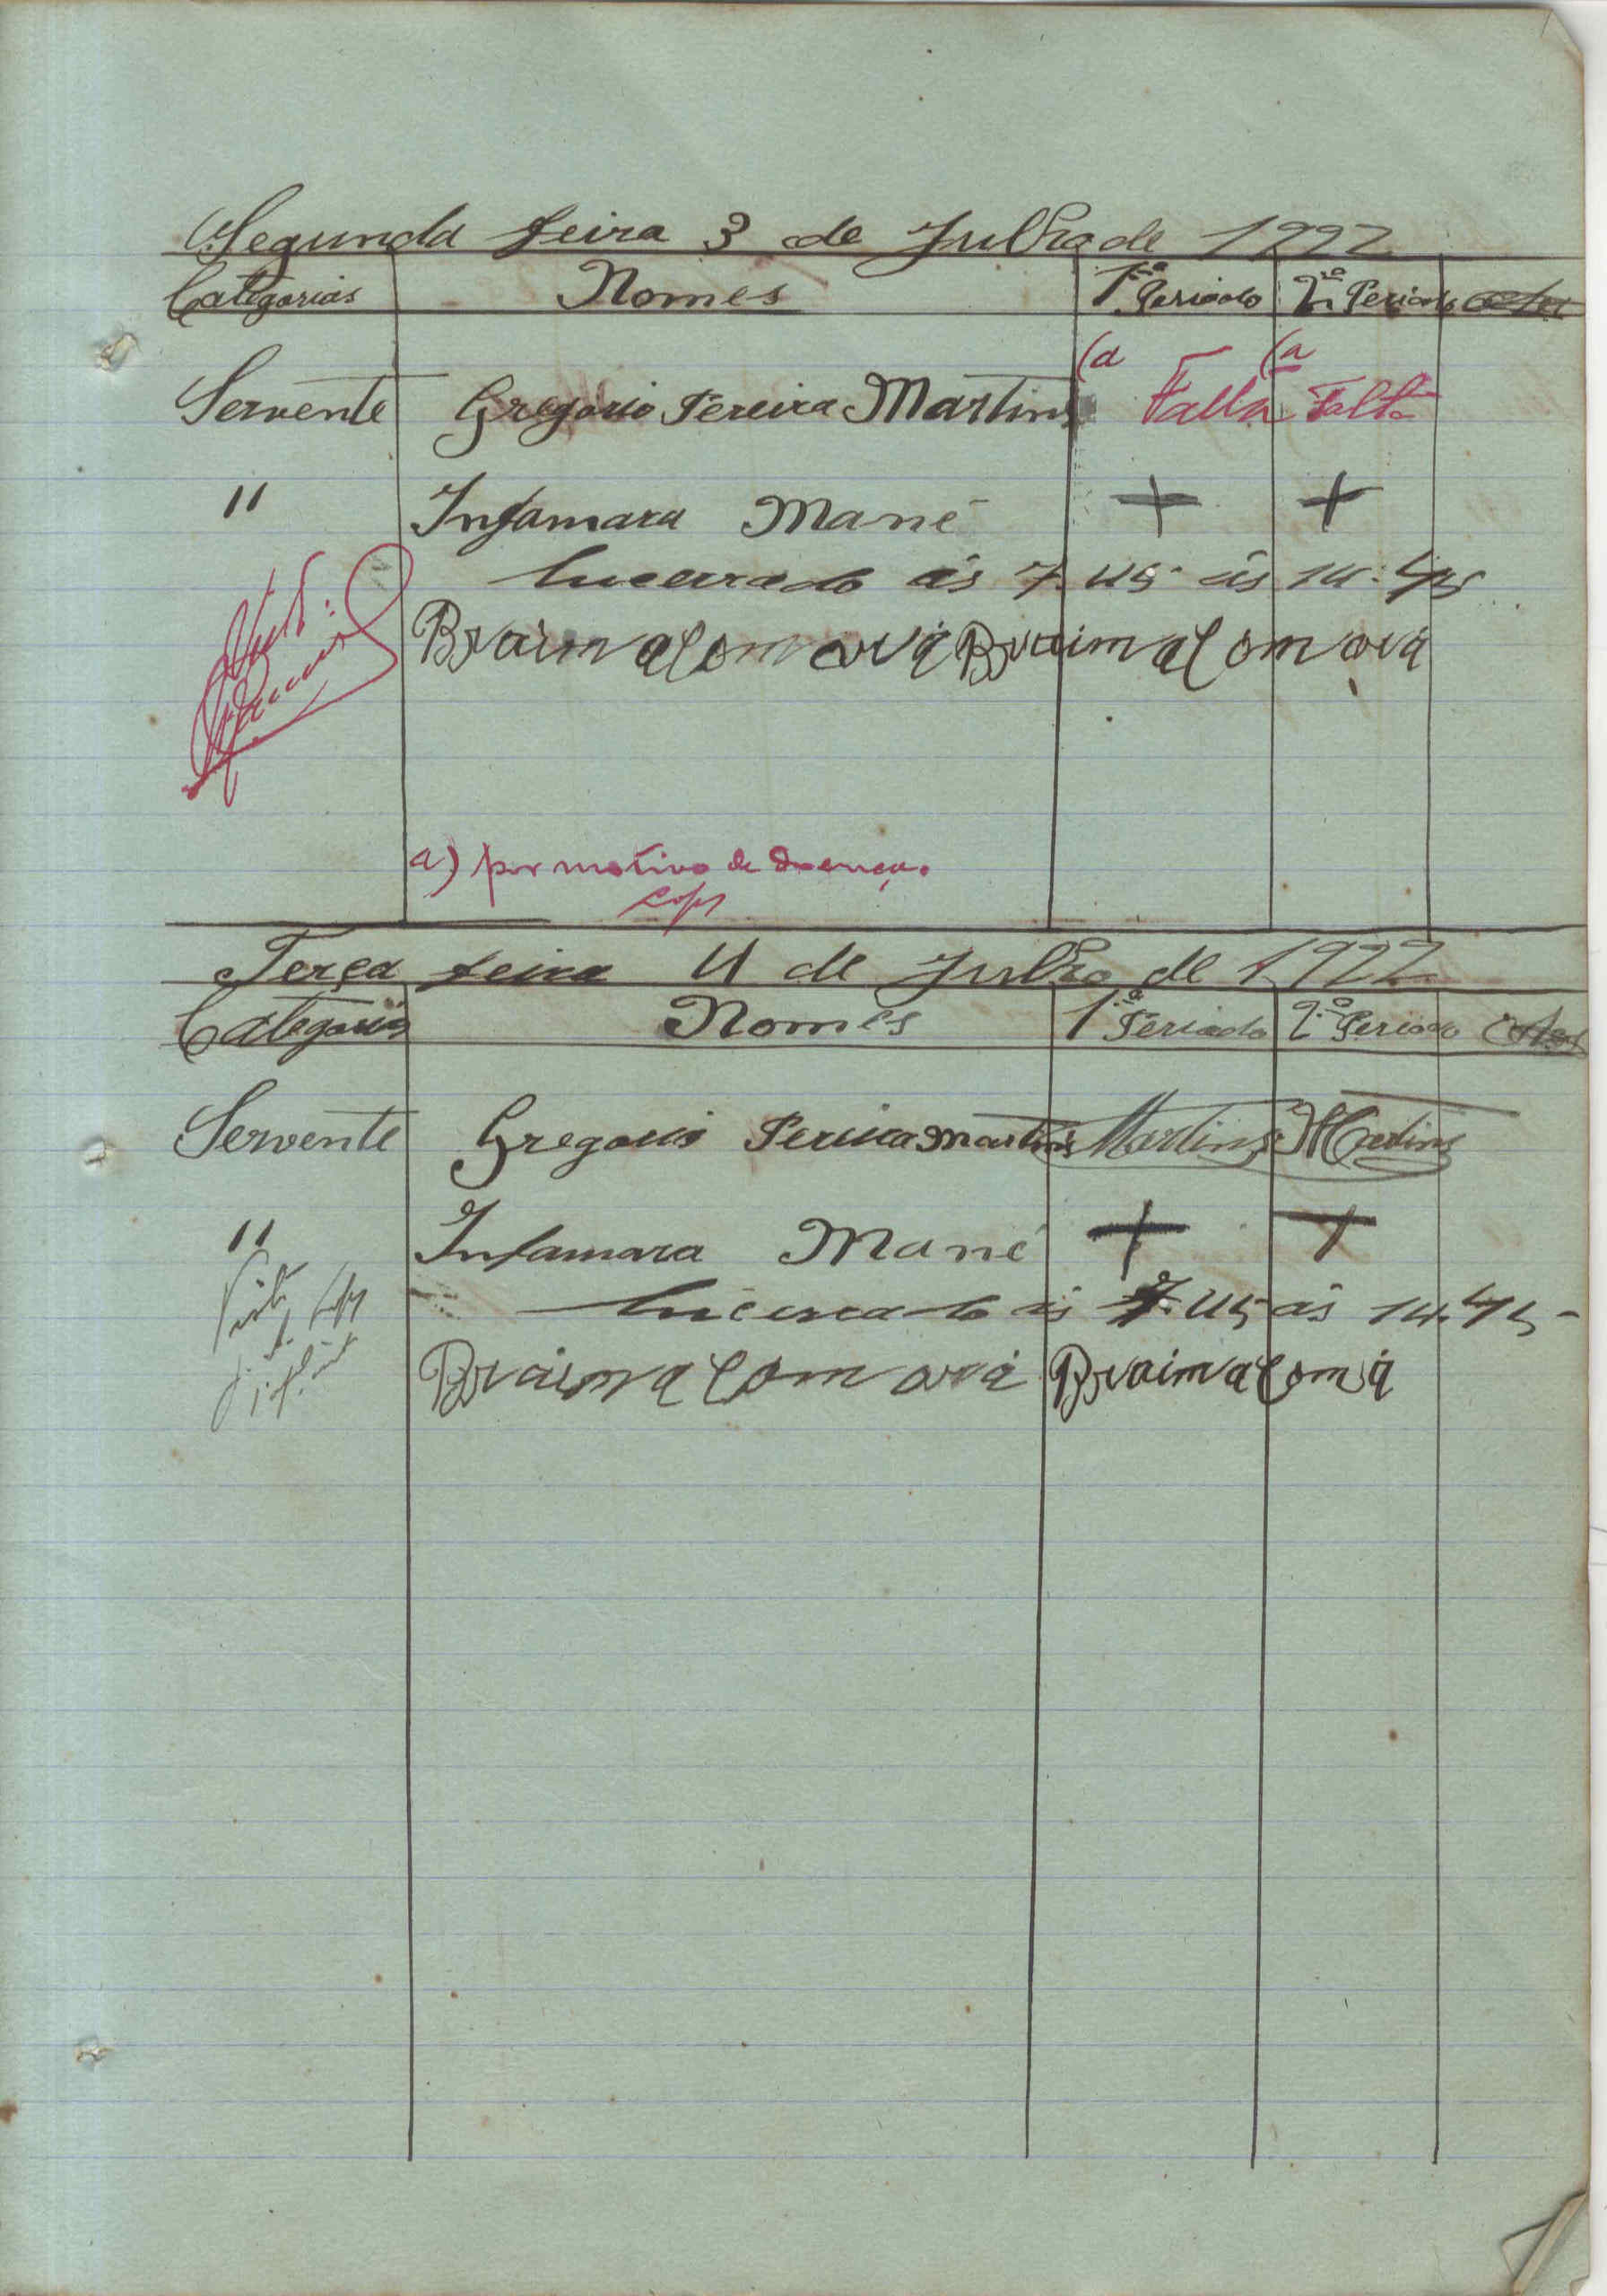 Segunda feira 3 de Julho de 1922
Categorias Nomes 1º Periodo 2º Periodo
(a (a
Servente Gregorio Pereira Martins Falta Falta
" Infamara Mané + +
Encerrado ás 7.45 ás 14.45
Braima Comará Braima Comará
a) por motivo de doença.
Terça feira 4 de Julho de 1922
Categorias Nomes 1º Periodo 2º Periodo
Servente Gregorio Pereira Martins Martins Martins
" Infamara Mané + +
Encerrado ás 7.45 ás 14.45
Braima Comará Braima Comá